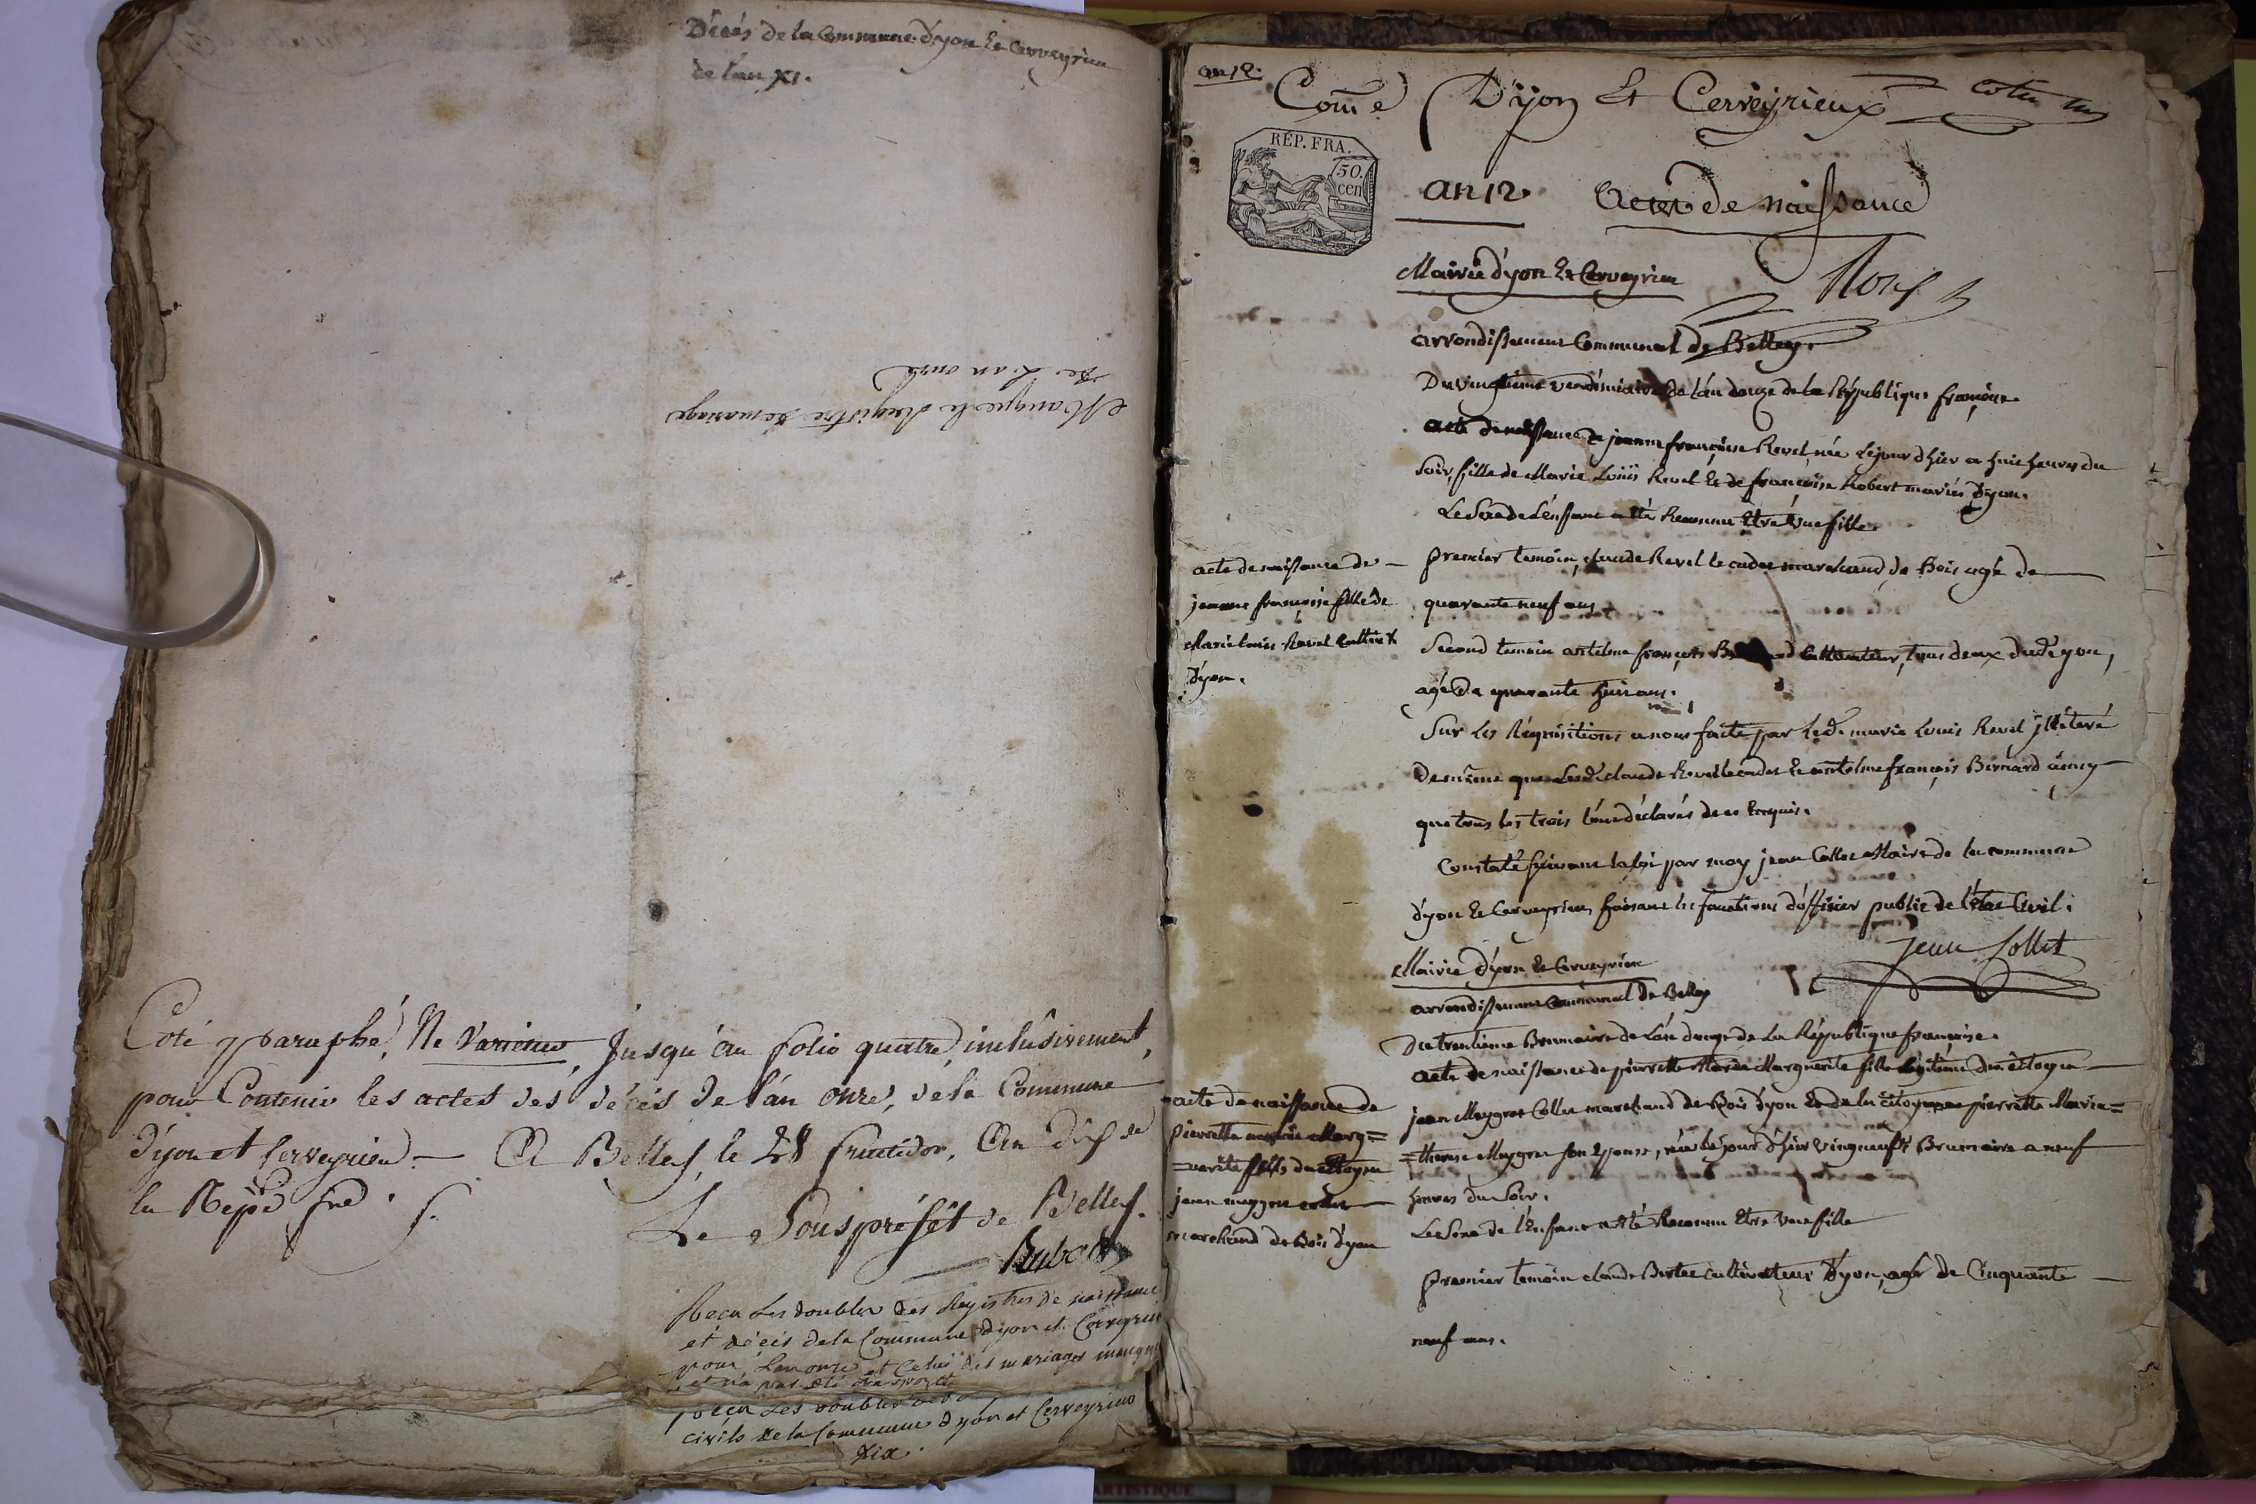 Décés de la Commune d'yon & Cerveyrieu
de l'an XI.
Manque le Registre de mariage
de L'an onze
Coté & paraphé, Ne Varietur, Jusqu'au folio quatre inclusivement,
pour Contenir les actes des décés de l'an onze, de la Commune
D'yon et Cerveyrieu. — A Belley, le 28 fructidor, An dix de
la Repq. fne.
Le Sous préfet de Belley.
Recu Les doubles des Registres de naissance
et décès de la Commune d'yon et Cerveyrieu
pour Lan onze et Celui des mariages manque
et n'a pas été
recu Les doubles
civils de la Commune d'yon et Cerveyrieu
dix.
an 12.
Com.e D'yon Et Cerveyrieux
RÉP. FRA.
50.
cen
an 12 Actes de naissance
Mairie d'yon & Cerveyrieu
arrondissement Communal de Belley.
Du vingtieme vendémiaire de l'an douze de la République françoise.
acte de naissance de jeanne françoise Revel née le jour d'hier a huit heures du
Soir, fille de Marie Louis Revel & de françoise Robert mariés d'yon.
Le Sexe de L'enfant a été Reconnu Etre Une fille.
acte de naissance de —
jeanne françoise fille de
Marie louis Revel Cultivr
d'yon.
premier temoin, claude Revel le cadet marchand de Bois agé de —
quarante neuf ans
Second temoin antelme françois Bernard Cultivateur, tous deux dud. yon,
agé de quarante huit ans.
Sur les Réquisitions a nous faite par led. marie Louis Revel illéteré
de même que lesd. claude Revel le cadet & antelme françois Bernard ainsy
que tous les trois l'ont déclarés de ce Enquis.
Constaté suivant la loi par moy jean Collet Maire de la commune
d'yon & Cerveyrieu faisant les fonctions d'officier public de l'état Civil.
jean Collet
Mairie d'yon & Cerveyrieu
arrondissement Communal de Belley
Du trentième Brumaire de L'an douze de La République françoise.
acte de naissance de pierrette Marie Marguerite fille légitime du citoyen —
acte de naissance de
pierrette marie Marg=
=uerite fille du citoyen
jean meygret collet —
marchand de Bois d'yon
jean Meygret Collet marchand de Bois d'yon & de la citoyenne pierrette Marie=
=therese Meygret son Epouse, née le jour d'hier vingneuf Brumaire a neuf
heures du Soir.
Le Sexe de l'Enfant a été Reconnu Etre Une fille
premier temoin claude Bertet cultivateur d'yon, agé de Cinquante —
neuf ans.